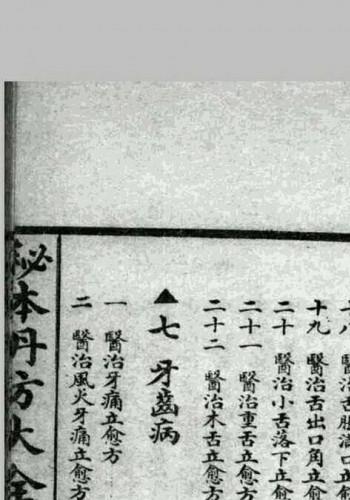 醫治舌脹滿口立愈
十九 醫治舌出口角立愈
二十 醫治小舌落下立愈
二十一 醫治重舌立愈方
二十二 醫治木舌立愈方
▲七 牙齒病
一 醫治牙痛立愈方
二 醫治風火牙痛立愈方
秘本丹方大全